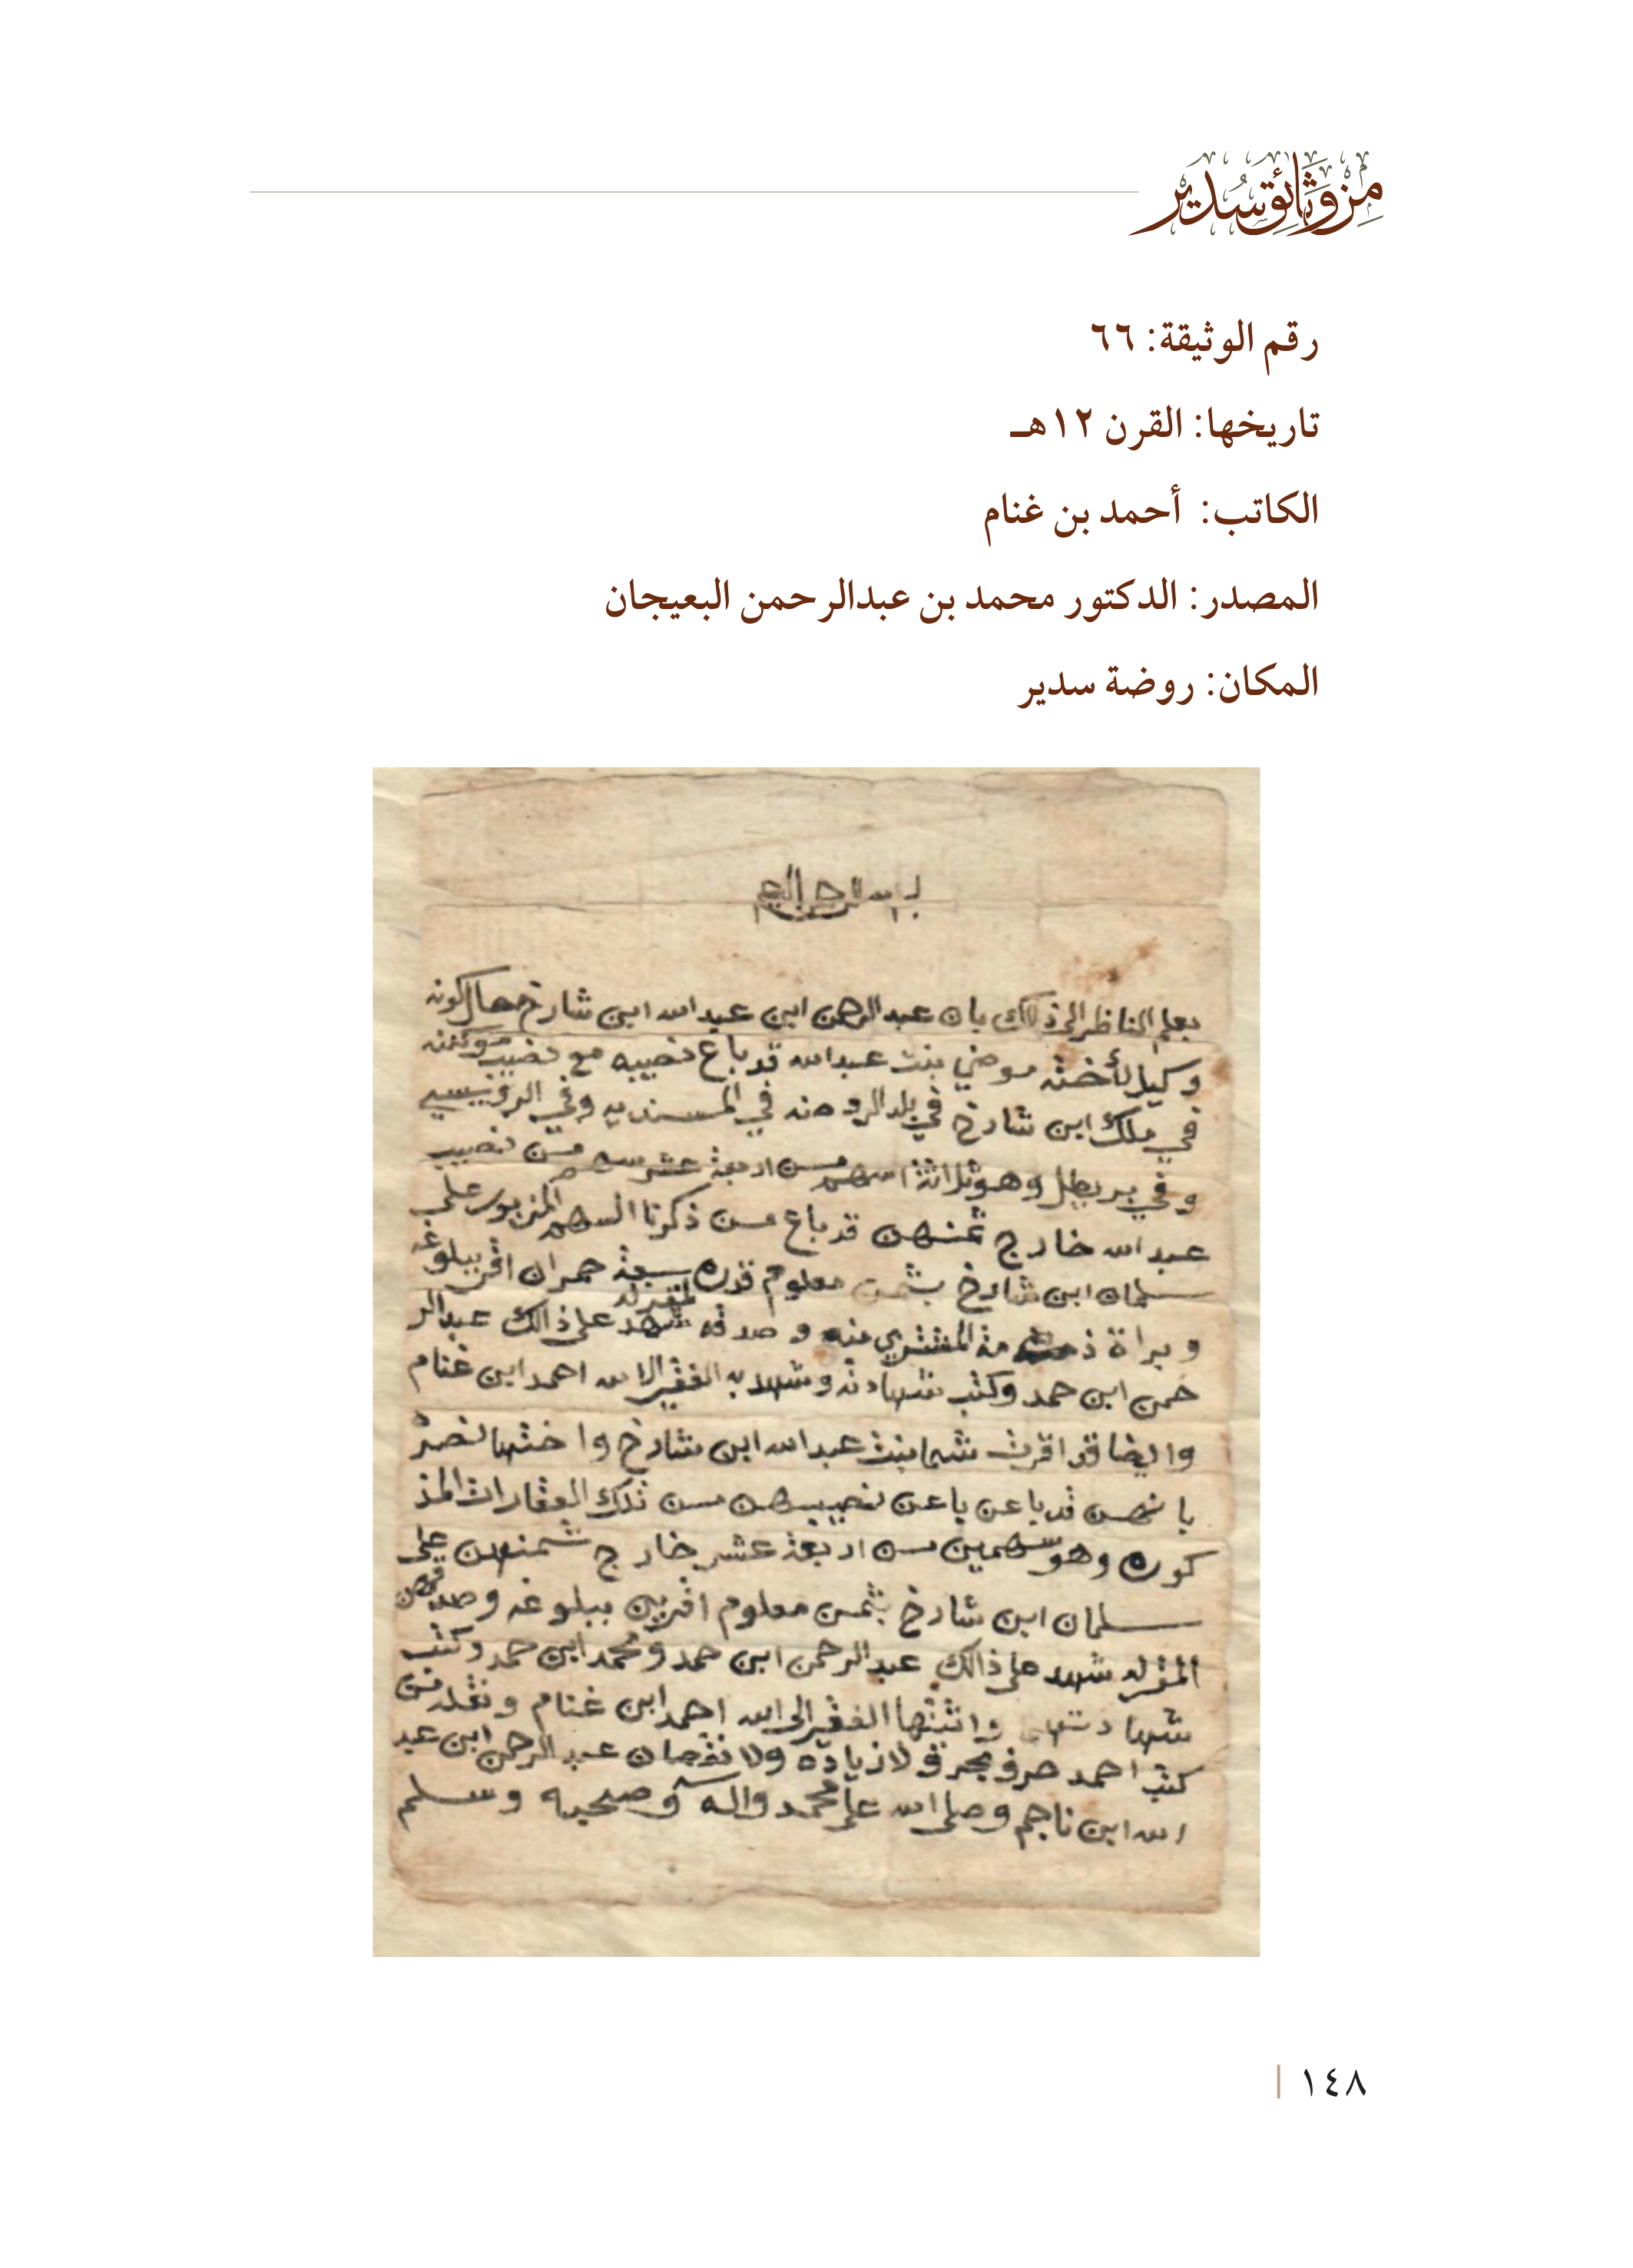 من وثائق سدير
رقم الوثيقة: ٦٦
تاريخها: القرن ١٢هـ
الكاتب: أحمد بن غنام
المصدر: الدكتور محمد بن عبدالرحمن البعيجان
المكان: روضة سدير
بسم الله الرحمن الرحيم
يعلم الناظر الى ذالك بان عبدالرحمن ابن عبدالله ابن شارخ حال كونه
وكيل لأخته موضي بنت عبدالله قد باع نصيبه مع نصيب موكلته
في ملك ابن شارخ في بلد الروضه في المسنديه وفي الرفيسي
وفي بريطل وهو ثلاثة اسهم من اربعة عشر سهم من نصيب
عبدالله خارج ثمنهن قد باع من ذكرنا السهم المزبور على
سلمان ابن شارخ بثمن معلوم قدره سبعة حمران اقر ببلوغه
وبراة ذمة المشتري منه وصدقه المقر له شهد على ذالك عبدالر
حمن ابن حمد وكتب شهادته وشهد به الفقير الى الله احمد ابن غنام
وايضا قد اقرت شما بنت عبدالله ابن شارخ واختها نصره
بانهن قد باعن باعن نصيبهن من تلك العقارات المذ
كوره وهو سهمين من اربعة عشر خارج ثمنهن على
سلمان ابن شارخ بثمن معلوم اقرين ببلوغه وصدقهن
المقر له شهد على ذالك عبدالرحمن ابن حمد ومحمد ابن حمد وكتب
شهادتهما واثبتها الفقير الى الله احمد ابن غنام ونقله من
كتب احمد حرف بحرف لا زياده ولا نقصان عبدالرحمن ابن عبد
الله ابن ناجم وصلى الله على محمد واله وصحبه وسلم
١٤٨